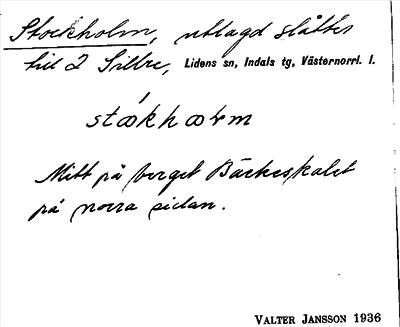 Stockholm, utlagd slåtter
till 2 Sillre, Lidens sn, Indals tg, Västernorrl. l.
stækhærm
Mitt på berget Bäckeskalet
på norra sidan.
VALTER JANSSON 1936